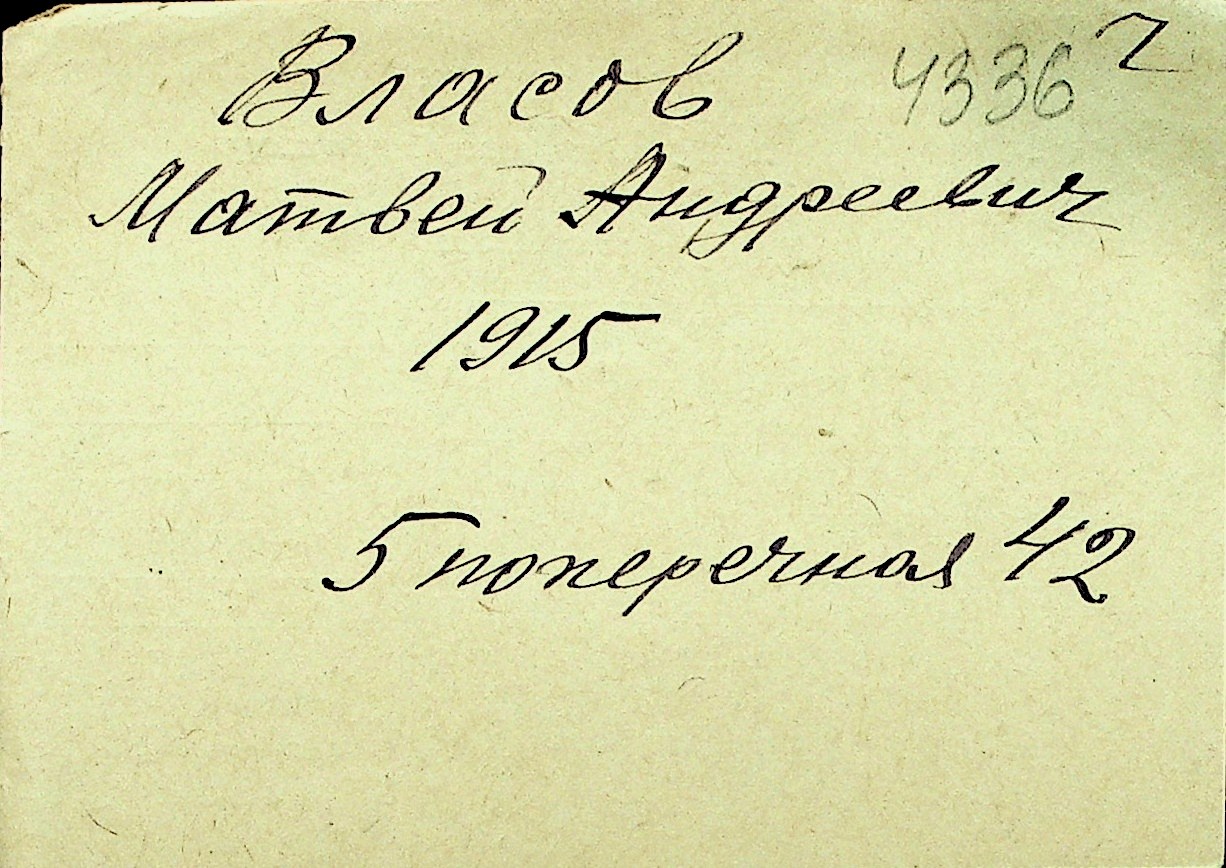 Власов 4336 2
Матвей Андреевич
1915
5 поперечная 42